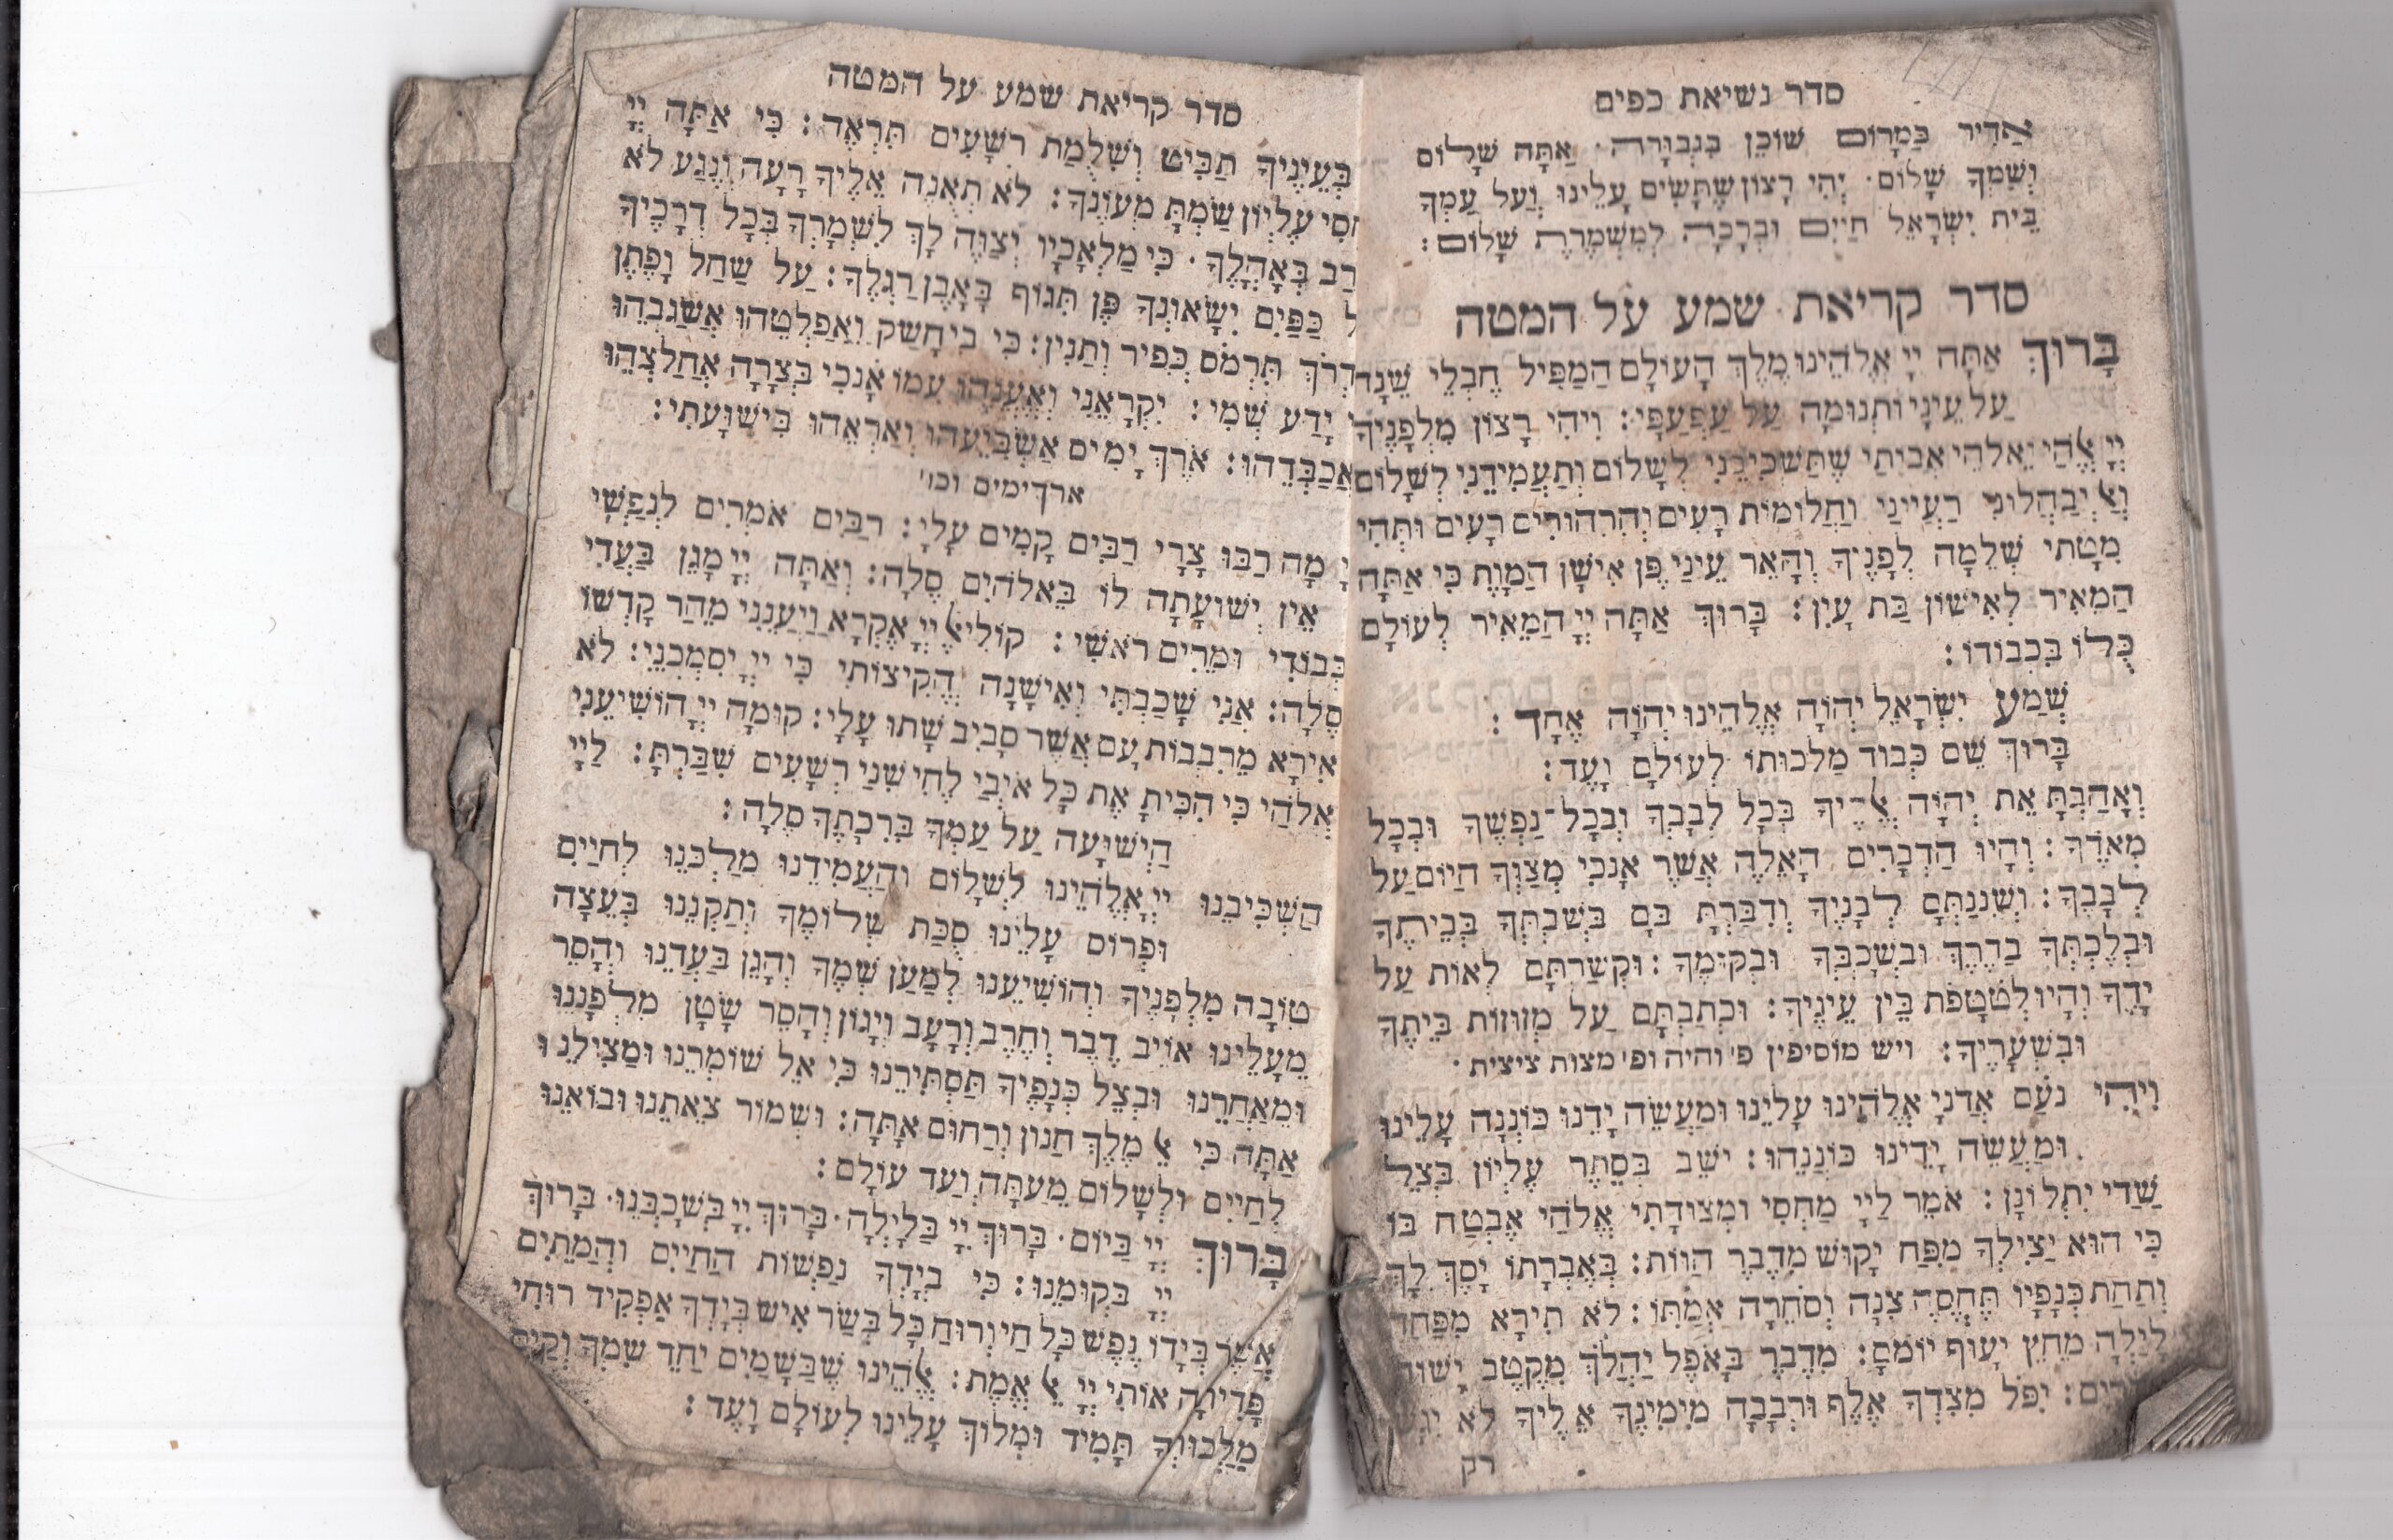 סדר נשיאת כפים
אַדִּיר בַּמָּרוֹם שׁוֹכֵן בִּגְבוּרָה. אַתָּה שָׁלוֹם
וְשִׁמְךָ שָׁלוֹם. יְהִי רָצוֹן שֶׁתָּשִׂים עָלֵינוּ וְעַל עַמְּךָ
בֵּית יִשְׂרָאֵל חַיִּים וּבְרָכָה לְמִשְׁמֶרֶת שָׁלוֹם:
סדר קריאת שמע על המטה
בָּרוּךְ אַתָּה יְיָ אֱלֹהֵינוּ מֶלֶךְ הָעוֹלָם הַמַּפִּיל חֶבְלֵי שֵׁנָה
עַל עֵינָי וּתְנוּמָה עַל עַפְעַפָּי: וִיהִי רָצוֹן מִלְּפָנֶיךָ
יְיָ אֱלֹהַי וֵאלֹהֵי אֲבוֹתַי שֶׁתַּשְׁכִּיבֵנִי לְשָׁלוֹם וְתַעֲמִידֵנִי לְשָׁלוֹם
וְאַל יְבַהֲלוּנִי רַעְיוֹנַי וַחֲלוֹמוֹת רָעִים וְהִרְהוּרִים רָעִים וּתְהִי
מִטָּתִי שְׁלֵמָה לְפָנֶיךָ וְהָאֵר עֵינַי פֶּן אִישַׁן הַמָּוֶת כִּי אַתָּה
הַמֵּאִיר לְאִישׁוֹן בַּת עָיִן: בָּרוּךְ אַתָּה יְיָ הַמֵּאִיר לְעוֹלָם
כֻּלּוֹ בִּכְבוֹדוֹ:
שְׁמַע יִשְׂרָאֵל יְהֹוָה אֱלֹהֵינוּ יְהֹוָה אֶחָד:
בָּרוּךְ שֵׁם כְּבוֹד מַלְכוּתוֹ לְעוֹלָם וָעֶד:
וְאָהַבְתָּ אֵת יְהֹוָה אֱלֹהֶיךָ בְּכָל לְבָבְךָ וּבְכָל־נַפְשְׁךָ וּבְכָל
מְאֹדֶךָ: וְהָיוּ הַדְּבָרִים הָאֵלֶּה אֲשֶׁר אָנֹכִי מְצַוְּךָ הַיּוֹם עַל
לְבָבֶךָ: וְשִׁנַּנְתָּם לְבָנֶיךָ וְדִבַּרְתָּ בָּם בְּשִׁבְתְּךָ בְּבֵיתֶךָ
וּבְלֶכְתְּךָ בַדֶּרֶךְ וּבְשָׁכְבְּךָ וּבְקוּמֶךָ: וּקְשַׁרְתָּם לְאוֹת עַל
יָדֶךָ וְהָיוּ לְטֹטָפֹת בֵּין עֵינֶיךָ: וּכְתַבְתָּם עַל מְזוּזוֹת בֵּיתֶךָ
וּבִשְׁעָרֶיךָ: ויש מוסיפין פ׳ והיה ופ׳ מצות ציצית.
וִיהִי נֹעַם אֲדֹנָי אֱלֹהֵינוּ עָלֵינוּ וּמַעֲשֵׂה יָדֵנוּ כּוֹנְנָה עָלֵינוּ
וּמַעֲשֵׂה יָדֵינוּ כּוֹנְנֵהוּ: יֹשֵׁב בְּסֵתֶר עֶלְיוֹן בְּצֵל
שַׁדַּי יִתְלוֹנָן: אֹמַר לַיְיָ מַחְסִי וּמְצוּדָתִי אֱלֹהַי אֶבְטַח בּוֹ
כִּי הוּא יַצִּילְךָ מִפַּח יָקוּשׁ מִדֶּבֶר הַוּוֹת: בְּאֶבְרָתוֹ יָסֶךְ לָךְ
וְתַחַת כְּנָפָיו תֶּחְסֶה צִנָּה וְסֹחֵרָה אֲמִתּוֹ: לֹא תִירָא מִפַּחַד
לַיְלָה מֵחֵץ יָעוּף יוֹמָם: מִדֶּבֶר בָּאֹפֶל יַהֲלֹךְ מִקֶּטֶב יָשׁוּד
יִפֹּל מִצִּדְּךָ אֶלֶף וּרְבָבָה מִימִינֶךָ אֵלֶיךָ לֹא
רק
סדר קריאת שמע על המטה
בְּעֵינֶיךָ תַבִּיט וְשִׁלֻּמַת רְשָׁעִים תִּרְאֶה: כִּי אַתָּה יְיָ
עֶלְיוֹן שַׂמְתָּ מְעוֹנֶךָ: לֹא תְאֻנֶּה אֵלֶיךָ רָעָה וְנֶגַע לֹא
בְּאָהֳלֶךָ. כִּי מַלְאָכָיו יְצַוֶּה לָךְ לִשְׁמָרְךָ בְּכָל דְּרָכֶיךָ
כַּפַּיִם יִשָּׂאוּנְךָ פֶּן תִּגּוֹף בָּאֶבֶן רַגְלֶךָ: עַל שַׁחַל וָפֶתֶן
תִּדְרֹךְ תִּרְמֹס כְּפִיר וְתַנִּין: כִּי בִי חָשַׁק וַאֲפַלְּטֵהוּ אֲשַׂגְּבֵהוּ
יָדַע שְׁמִי: יִקְרָאֵנִי וְאֶעֱנֵהוּ עִמּוֹ אָנֹכִי בְצָרָה אֲחַלְּצֵהוּ
וַאֲכַבְּדֵהוּ: אֹרֶךְ יָמִים אַשְׂבִּיעֵהוּ וְאַרְאֵהוּ בִּישׁוּעָתִי:
ארך ימים וכו׳
מָה רַבּוּ צָרָי רַבִּים קָמִים עָלָי: רַבִּים אֹמְרִים לְנַפְשִׁי
אֵין יְשׁוּעָתָה לוֹ בֵּאלֹהִים סֶלָה: וְאַתָּה יְיָ מָגֵן בַּעֲדִי
כְּבוֹדִי וּמֵרִים רֹאשִׁי: קוֹלִי אֶל יְיָ אֶקְרָא וַיַּעֲנֵנִי מֵהַר קָדְשׁוֹ
סֶלָה: אֲנִי שָׁכַבְתִּי וְאִישָׁנָה הֱקִיצוֹתִי כִּי יְיָ יִסְמְכֵנִי: לֹא
אִירָא מֵרִבְבוֹת עָם אֲשֶׁר סָבִיב שָׁתוּ עָלָי: קוּמָה יְיָ הוֹשִׁיעֵנִי
אֱלֹהַי כִּי הִכִּיתָ אֶת כָּל אֹיְבַי לֶחִי שִׁנֵּי רְשָׁעִים שִׁבַּרְתָּ: לַיְיָ
הַיְשׁוּעָה עַל עַמְּךָ בִּרְכָתֶךָ סֶּלָה:
הַשְׁכִּיבֵנוּ יְיָ אֱלֹהֵינוּ לְשָׁלוֹם וְהַעֲמִידֵנוּ מַלְכֵּנוּ לְחַיִּים
וּפְרוֹס עָלֵינוּ סֻכַּת שְׁלוֹמֶךָ וְתַקְּנֵנוּ בְּעֵצָה
טוֹבָה מִלְּפָנֶיךָ וְהוֹשִׁיעֵנוּ לְמַעַן שְׁמֶךָ וְהָגֵן בַּעֲדֵנוּ וְהָסֵר
מֵעָלֵינוּ אוֹיֵב דֶּבֶר וְחֶרֶב וְרָעָב וְיָגוֹן וְהָסֵר שָׂטָן מִלְּפָנֵנוּ
וּמֵאַחֲרֵנוּ וּבְצֵל כְּנָפֶיךָ תַּסְתִּירֵנוּ כִּי אֵל שׁוֹמְרֵנוּ וּמַצִּילֵנוּ
אַתָּה כִּי אֵל מֶלֶךְ חַנּוּן וְרַחוּם אָתָּה: וּשְׁמוֹר צֵאתֵנוּ וּבוֹאֵנוּ
לְחַיִּים וּלְשָׁלוֹם מֵעַתָּה וְעַד עוֹלָם:
בָּרוּךְ יְיָ בַּיּוֹם. בָּרוּךְ יְיָ בַּלָּיְלָה. בָּרוּךְ יְיָ בְּשָׁכְבֵּנוּ. בָּרוּךְ
יְיָ בְּקוּמֵנוּ: כִּי בְיָדְךָ נַפְשׁוֹת הַחַיִּים וְהַמֵּתִים
אֲשֶׁר בְּיָדוֹ נֶפֶשׁ כָּל חַי וְרוּחַ כָּל בְּשַׂר אִישׁ בְּיָדְךָ אַפְקִיד רוּחִי
פָּדִיתָה אוֹתִי יְיָ אֵל אֱמֶת: אֱלֹהֵינוּ שֶׁבַּשָּׁמַיִם יַחֵד שִׁמְךָ וְקַיֵּם
מַלְכוּתְךָ תָּמִיד וּמְלוֹךְ עָלֵינוּ לְעוֹלָם וָעֶד: